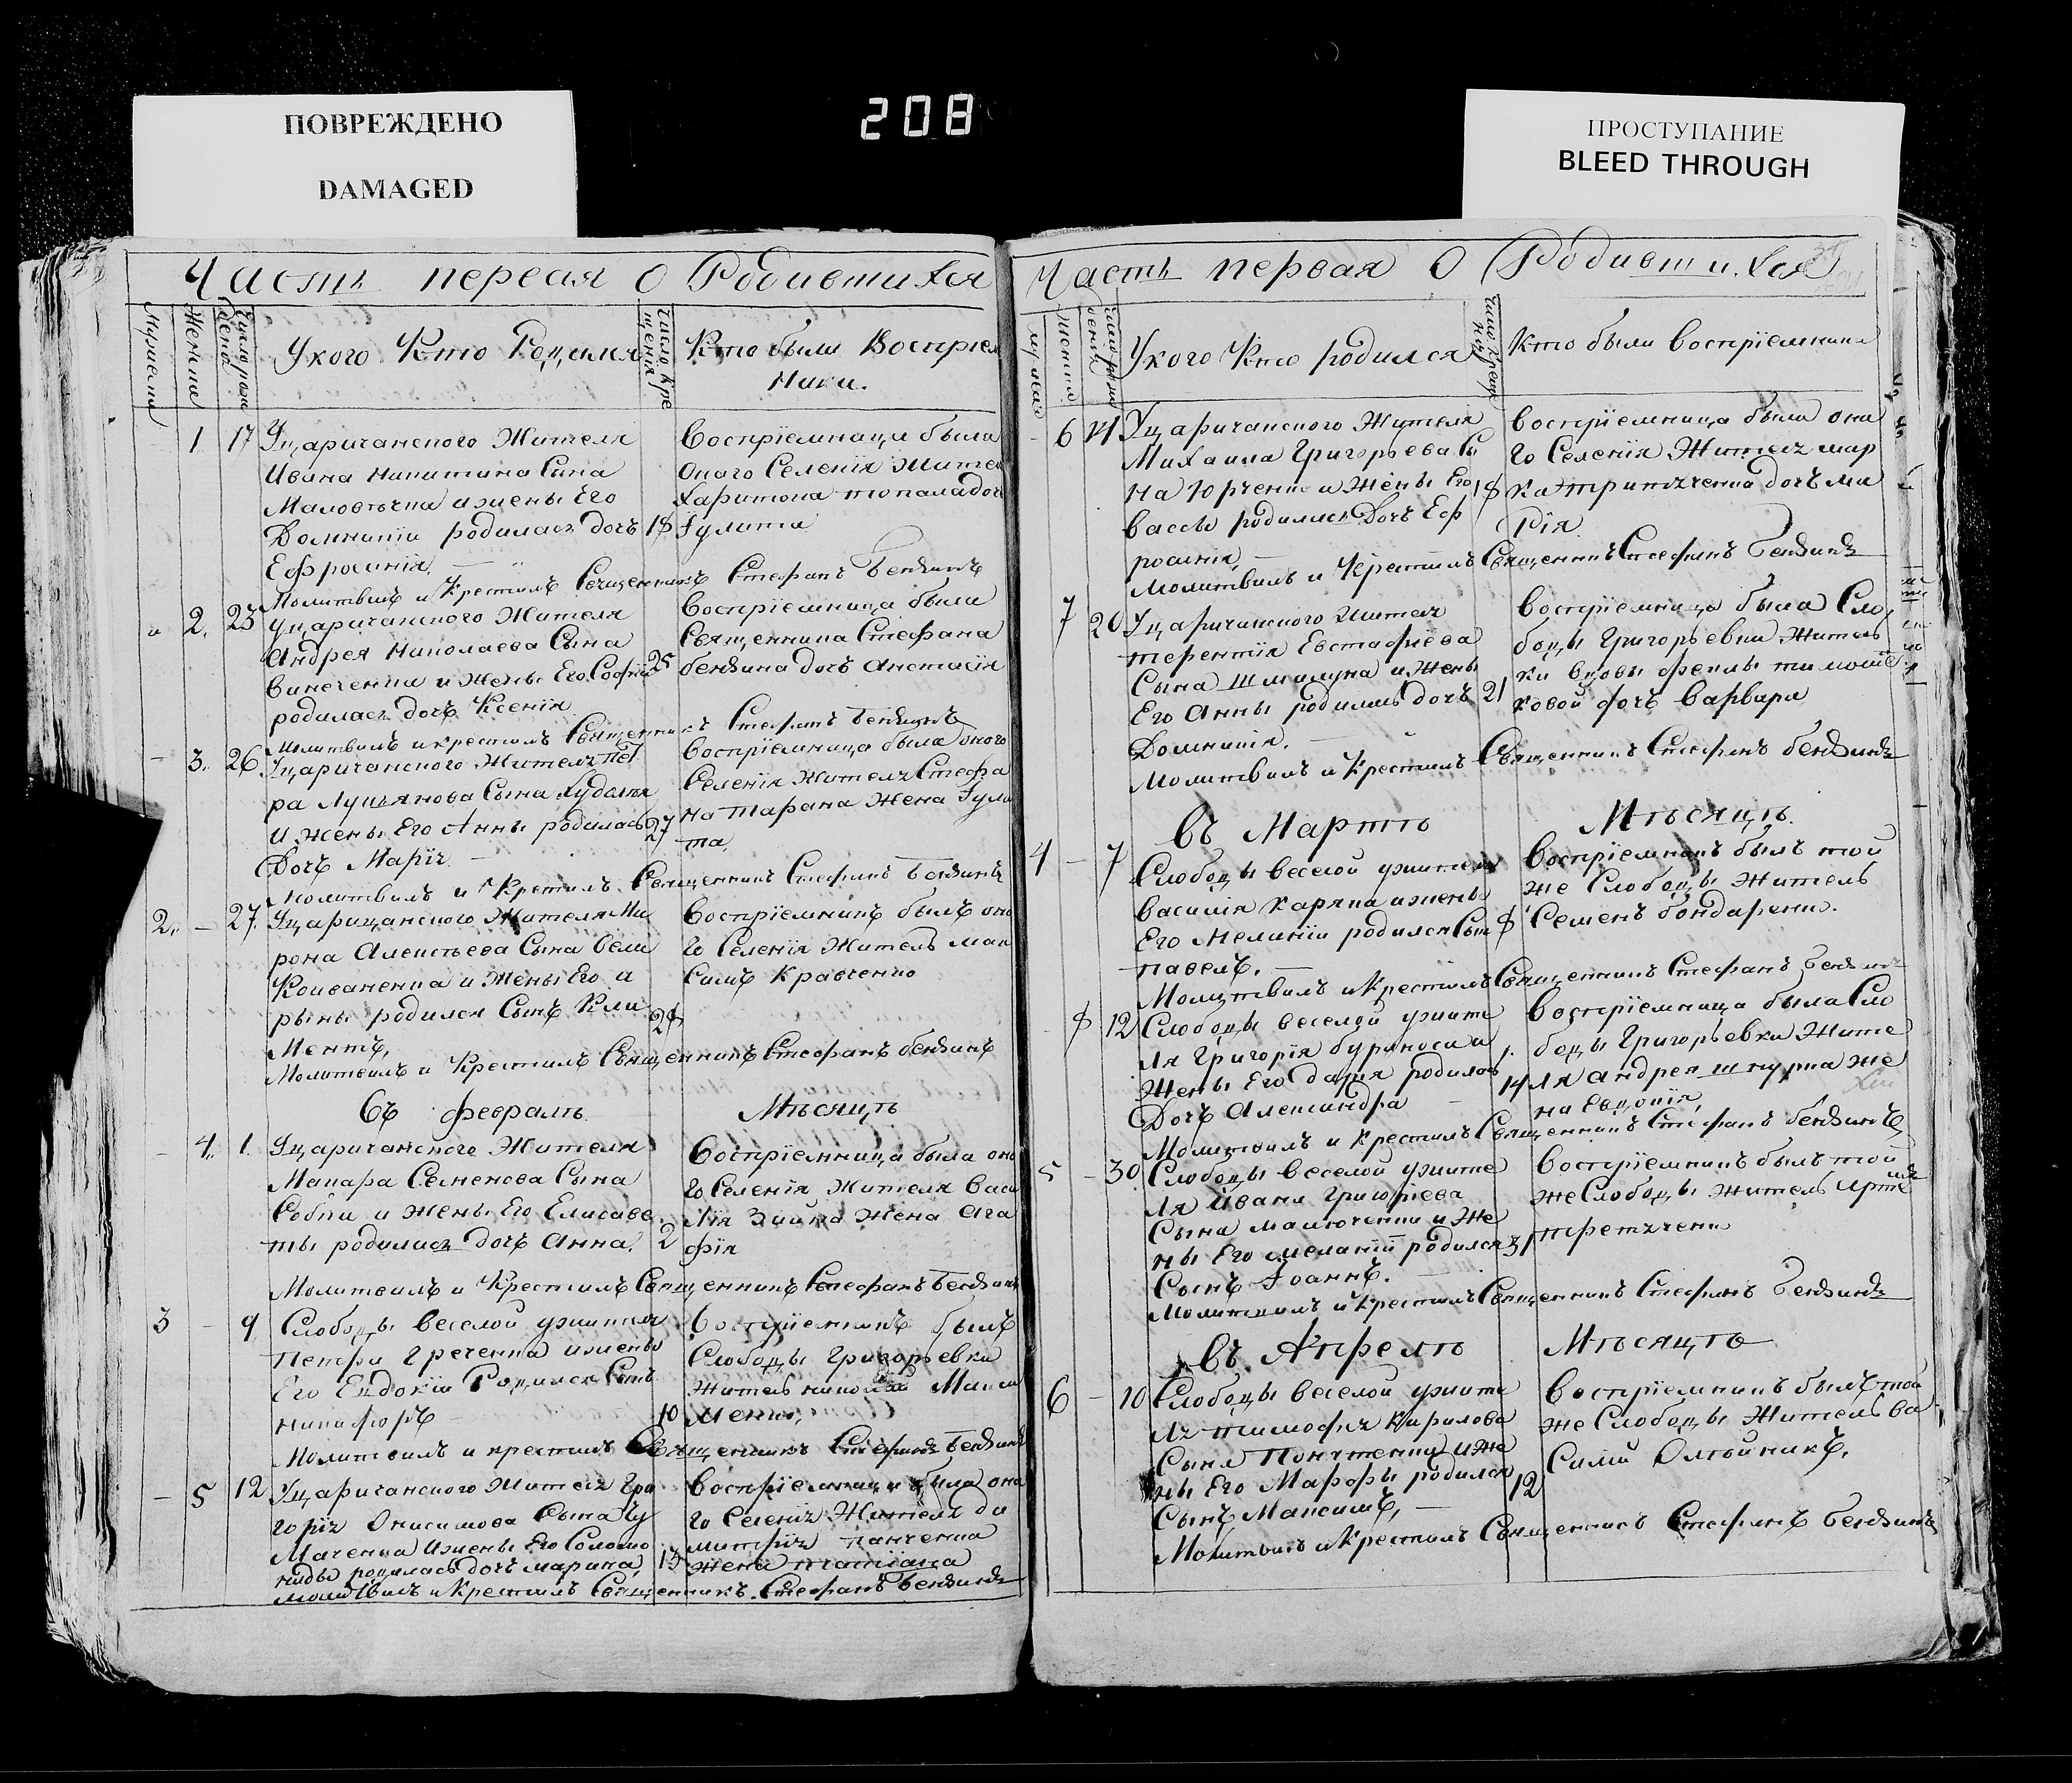 ПОВРЕЖДЕНО
DAMAGED
208
ПРОСТУПАНИЕ
BLEED THROUGH
Часть первая о Родившихся
Мужеска
Женска
Число рож
дения
У кого Кто Родился
Число Кре
щения
Кто были Восприем
ники.
1 17 У цариченского Жителя
Ивана Никитина Сына
и жены Его
Домникіи родилась дочь 18
Ефросинія.
Воспріемница была
Оного Селенія Жител
Харитона топала доч
Іулита
Молитвилъ и Крестилъ Священникъ Стефанъ бензинъ
2. 23 У цариченского Жителя
Андрея Николаева Сына
Виниченка и Жены Его Софіи 25
родилась дочь Ксенія
Воспріемница была
Священника Стефана
бензина дочь Анстасія
Молитвилъ и крестилъ Священникъ Стефанъ бензинъ
3. 26 У цариченского Жителя Пет
ра Лукьянова Сына
и Жены Его Анны родилась 27
Дочь Марія
Воспріемница была оного
Селенія Жителя Стефа
на тарана Жена Іули
та.
Молитвилъ и Крестилъ Священникъ Стефанъ бензинъ
2. 27. У цариченского Жителя Ми
рона Алексеева Сына вели
Коиваненка и Жены Его и
рыны родился Сынъ Кли 28
Ментъ,
Воспріемникъ былъ оно
го Селенія Житель мак
симъ Кравченко
Молитвилъ и Крестилъ Священникъ Стефанъ бензинъ
Въ Февралѣ Мѣсяцѣ
4. 1. У цариченского Жителя
Макара Семенова Сына
Собки и Жены Его Елисаве
ты родилась дочь Анна. 2
Воспріемница была оно
го Селенія Жителя Васи
лія Зайка Жена Ага
фія
Молитвилъ и Крестилъ Священникъ Стефанъ бензинъ
3 9 Слободы веселой жителя
Петра Греченка и жены
Его Евдокіи Родился Сынъ
Никифоръ 10
Воспріемникъ былъ
Слободы Григорьевки
Житель николай Макси
Менко,
Молитвилъ и крестилъ Священникъ Стефанъ бензинъ
5 12 У цариченского Жителя Гри
горія Онисимова Сына Чу
Маченка и жены Его Соломо
ниды родилась дочь марина, 13
Воспріемница была оно
го Селенія Жителя ди
митрія панченка
жена татіана
Молитвилъ и Крестилъ Священникъ Стефанъ бензинъ
Часть первая О Родившихся
мужеска
женска
число рож
дения
У кого Кто родился
число креще
ния
Кто были воспріемники
6 14 У цариченского Жителя
Михаила Григорьева Сы
на Юрченка и Жены Его 18
вассы родилась Дочь Еф
росинія,
воспріемница была оно
го Селенія Жителя мар
ка третяченка дочь ма
рія.
Молитвилъ и Крестилъ Священникъ Стефанъ бензинъ
7 20 У цариченского Жителя
терентія Евстафіева
Сына шмалуна и Жены
Его Анны родилась дочь 21
Домникія.
Воспріемница была Сло
боды Григорьевки Житель
ки вдовы феклы тимоше
ковой дочь Варвара
Молитвилъ и Крестилъ Священникъ Стефанъ бензинъ
Въ Мартѣ Мѣсяцѣ.
4 7 Слободы веселой жителя
василія каряка и жены
Его Меланіи родился Сынъ 8
павелъ.
Воспріемникъ былъ той
же Слободы Житель
Семенъ бондаренко.
Молитвилъ и Крестилъ Священникъ Стефанъ бензинъ
8 12 Слободы веселой жите
ля Григорія бурноса и
Жены Его дарія родилась 14
Дочь Александра
Воспріемница была Сло
боды Григорьевки Жите
ля андрея шкурка же
на Евдокія,
Молитвилъ и крестилъ Священникъ Стефанъ бензинъ
5 30 Слободы веселой жите
ля Ивана Григорьева
Сына малюченка и Же
ны Его мелании родился 31
Сынъ Іоаннъ.
Воспріемникъ былъ той
же Слободы Житель Арте
мъ
третяченко
Молитвилъ и Крестилъ Священникъ Стефанъ бензинъ
Въ Апрелѣ Мѣсяцѣ
6 10 Слободы веселой жите
ля тимофея Кирилова
Сына и же
ны Его Марфы родился 12
Сынъ Максимъ,
воспріемникъ былъ той
же Слободы Житель ва
силій Олѣйникъ.
Молитвилъ и Крестилъ Священникъ Стефанъ бензинъ